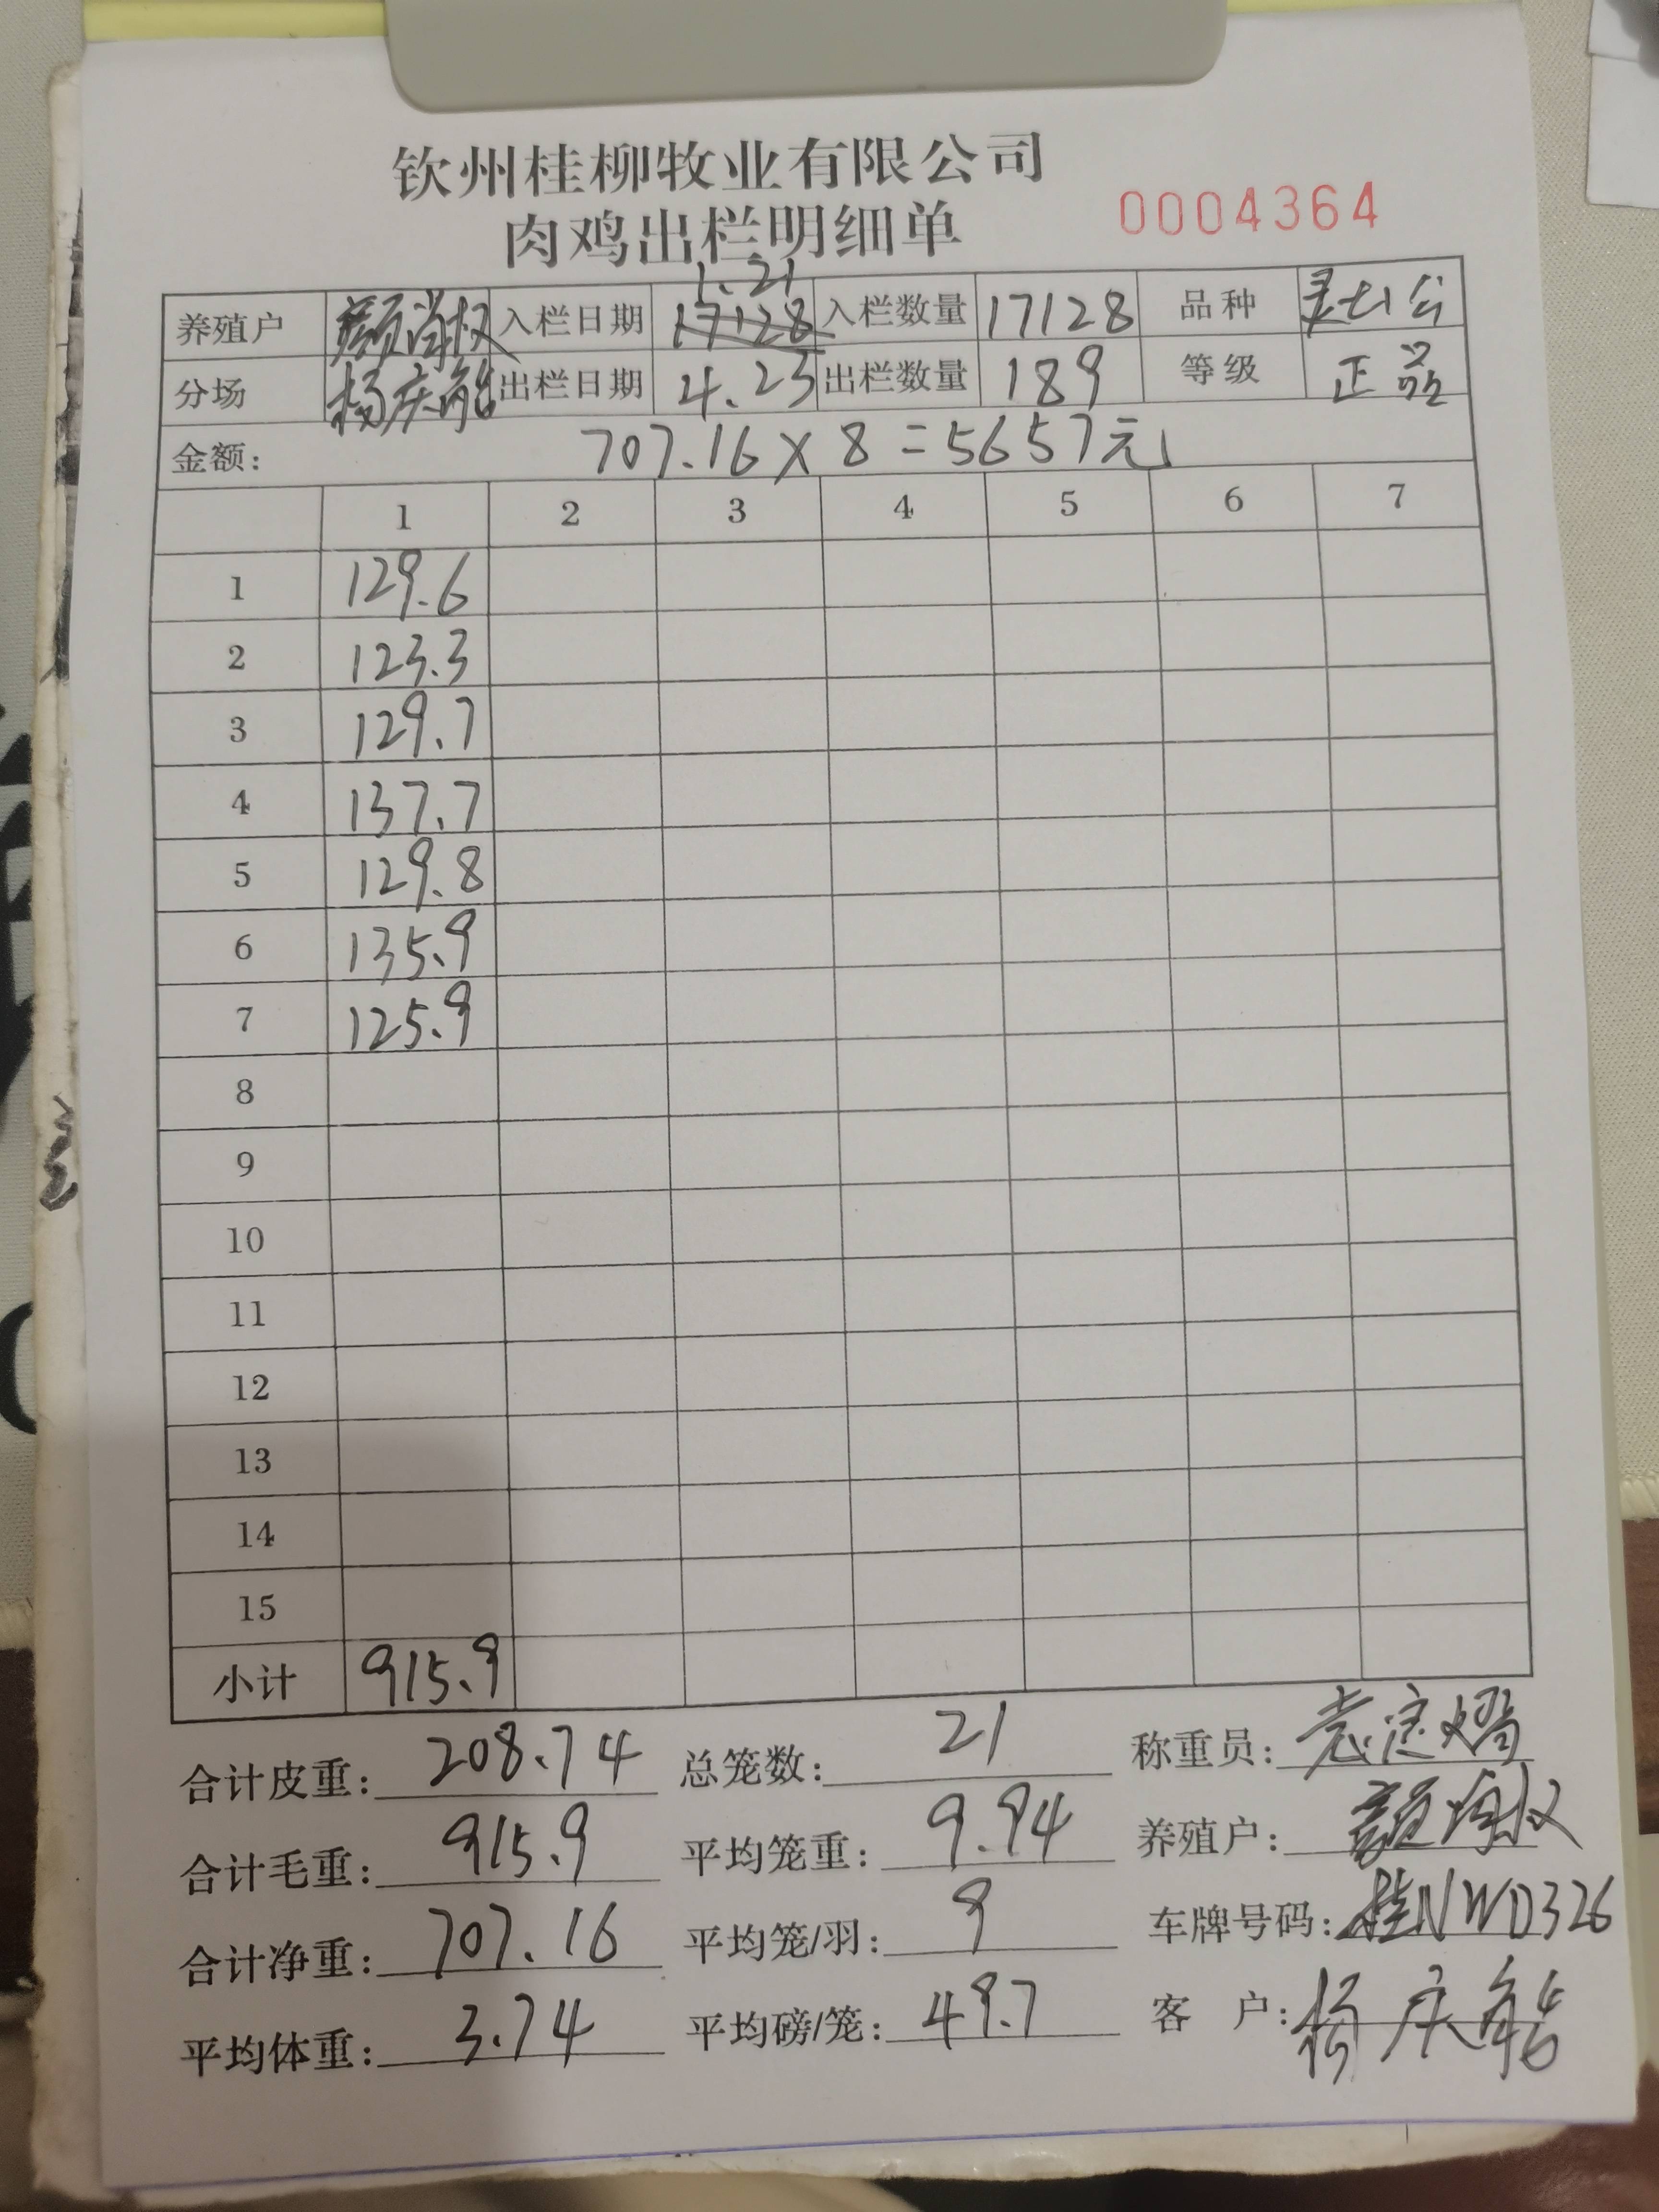 钦州桂柳牧业有限公司
肉鸡出栏明细单 0004364
养殖户 颜 权 入栏日期 1.21 17128 入栏数量 17128 品种 灵山公
分场 杨庆能 出栏日期 4.23 出栏数量 189 等级 正品
金额: 707.16×8=5657元
1 2 3 4 5 6 7
1 129.6
2 123.3
3 129.7
4 137.7
5 129.8
6 135.9
7 125.9
8
9
10
11
12
13
14
15
小计 915.9
合计皮重: 208.74 总笼数: 21 称重员:
合计毛重: 915.9 平均笼重: 9.94 养殖户: 颜 权
合计净重: 707.16 平均笼/羽: 9 车牌号码: 桂NWD326
平均体重: 3.74 平均磅/笼: 49.7 客 户: 杨庆能